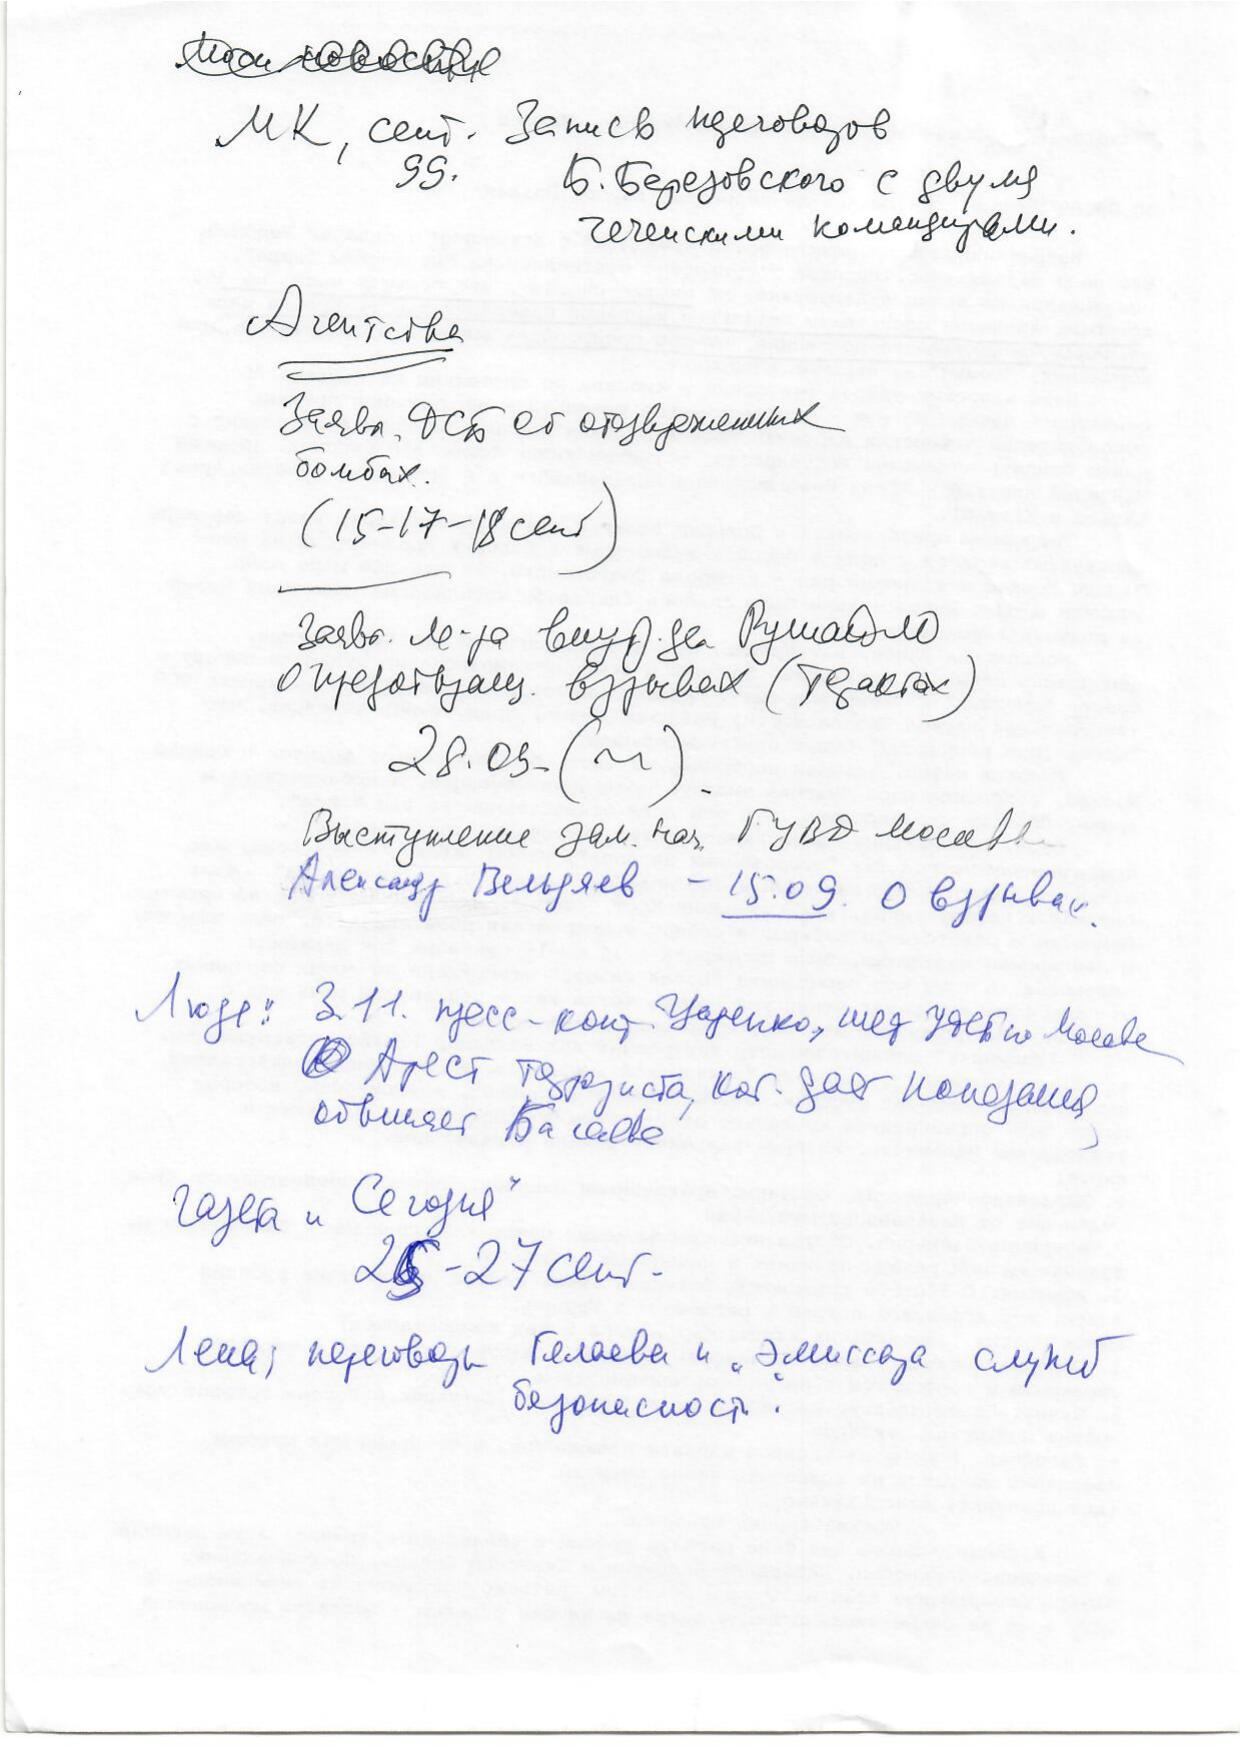 МК, сент. Запись переговоров
99. Б. Березовского с двумя
чеченскими командирами.
Агентства
Заявл. ФСБ об отозведенных
бомбах.
(15-17-18 сент)
Заявл. м-ра внутр. дел Рушайло
о предотвращ. взрывах (терактах)
28.09. (~)
Выступление зам. нач. ГУВД Москвы
Александр Вельдяев - 15.09. О взрывах.
Люди: 3.11. пресс-конф. Царенко, шеф УФСБ по Москве
Арест террориста, кот. дает показания,
обвиняет Басаева
Газета „Сегодня"
25-27 сент.
Лена; переговоры Гелаева и „эмиссара служб
безопасности".